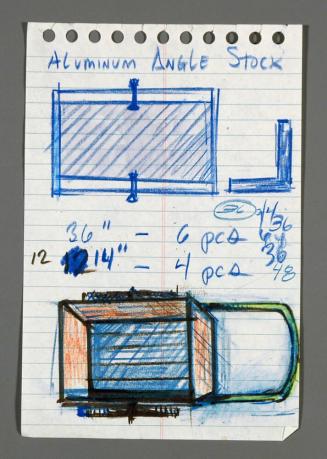 ALUMINUM ANGLE STOCK
36
36" - 6 pcs
36
12 14" - 4 pcs
36
48